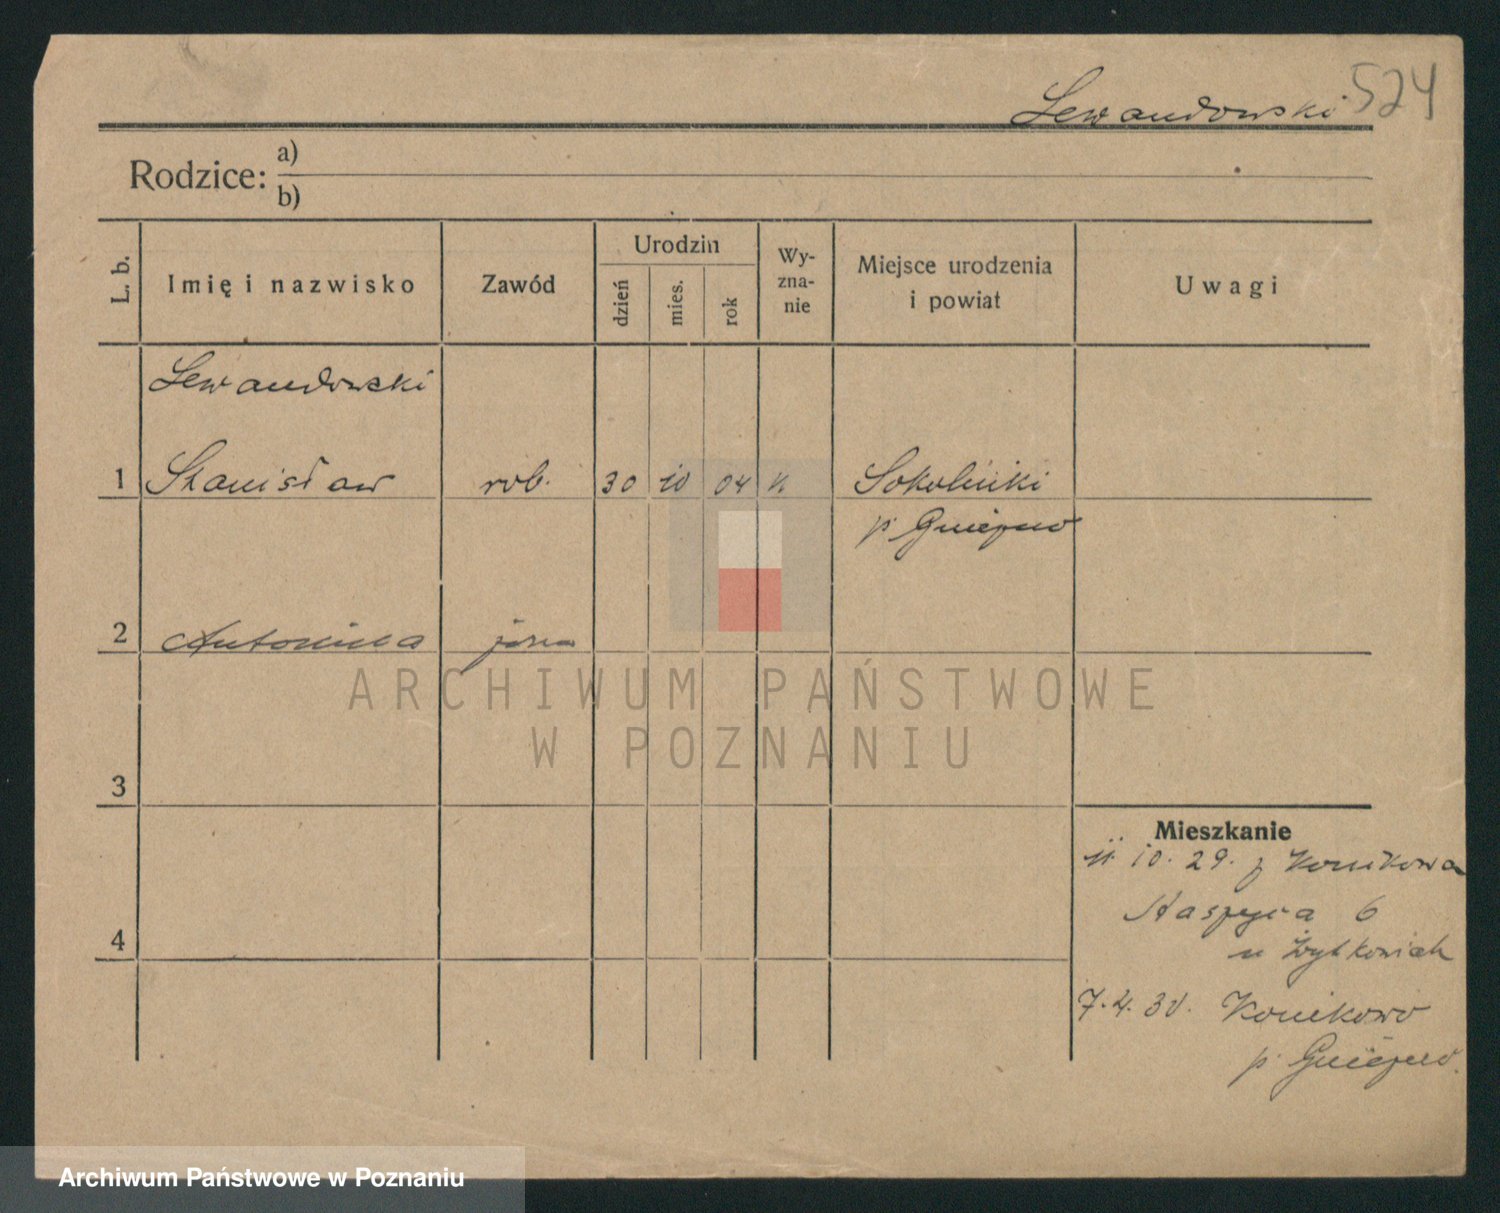 Lewandowski 524
Rodzice: a)
b)
L. b. Imię i nazwisko Zawód Urodzin dzień mies. rok Wy-zna-nie Miejsce urodzenia i powiat Uwagi
Lewandowski
1 Stanisław rob. 30 10 04 k Sokolniki
p Gniezno
2 Antonina żona
ARCHIWUM PAŃSTWOWE
W POZNANIU
3
4
Mieszkanie
11. 10. 29. z Konikowa
Staszyca 6
u
7. 4. 30. Konikowo
p. Gniezno.
Archiwum Państwowe w Poznaniu